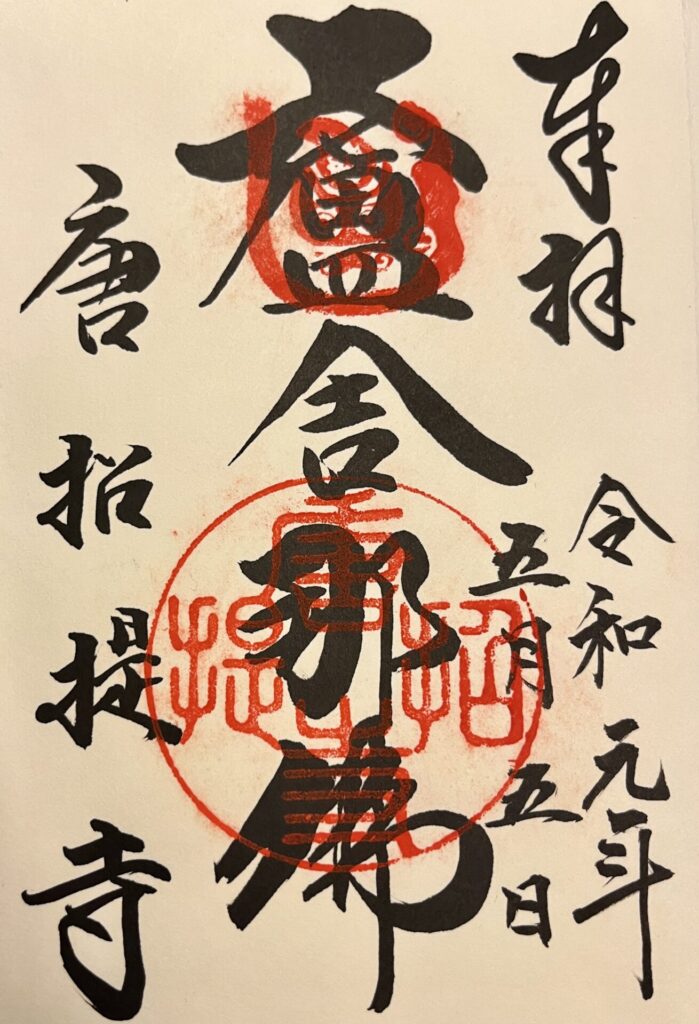 奉拝
令和元年
五月五日
盧舎那佛
唐招提寺
唐招提寺